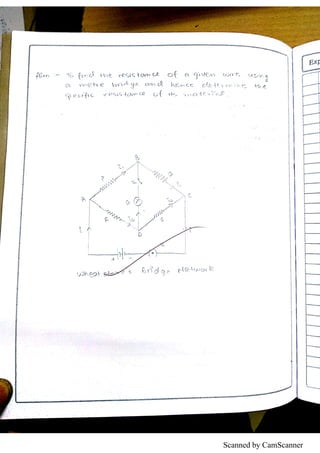 Aim - To find the resistance of a given wire using
a metre bridge and hence determine the
specific resistance of its material.
B
P
Q
A
G
C
R
S
D
Wheat stone's Bridge Network
Exp
Scanned by CamScanner